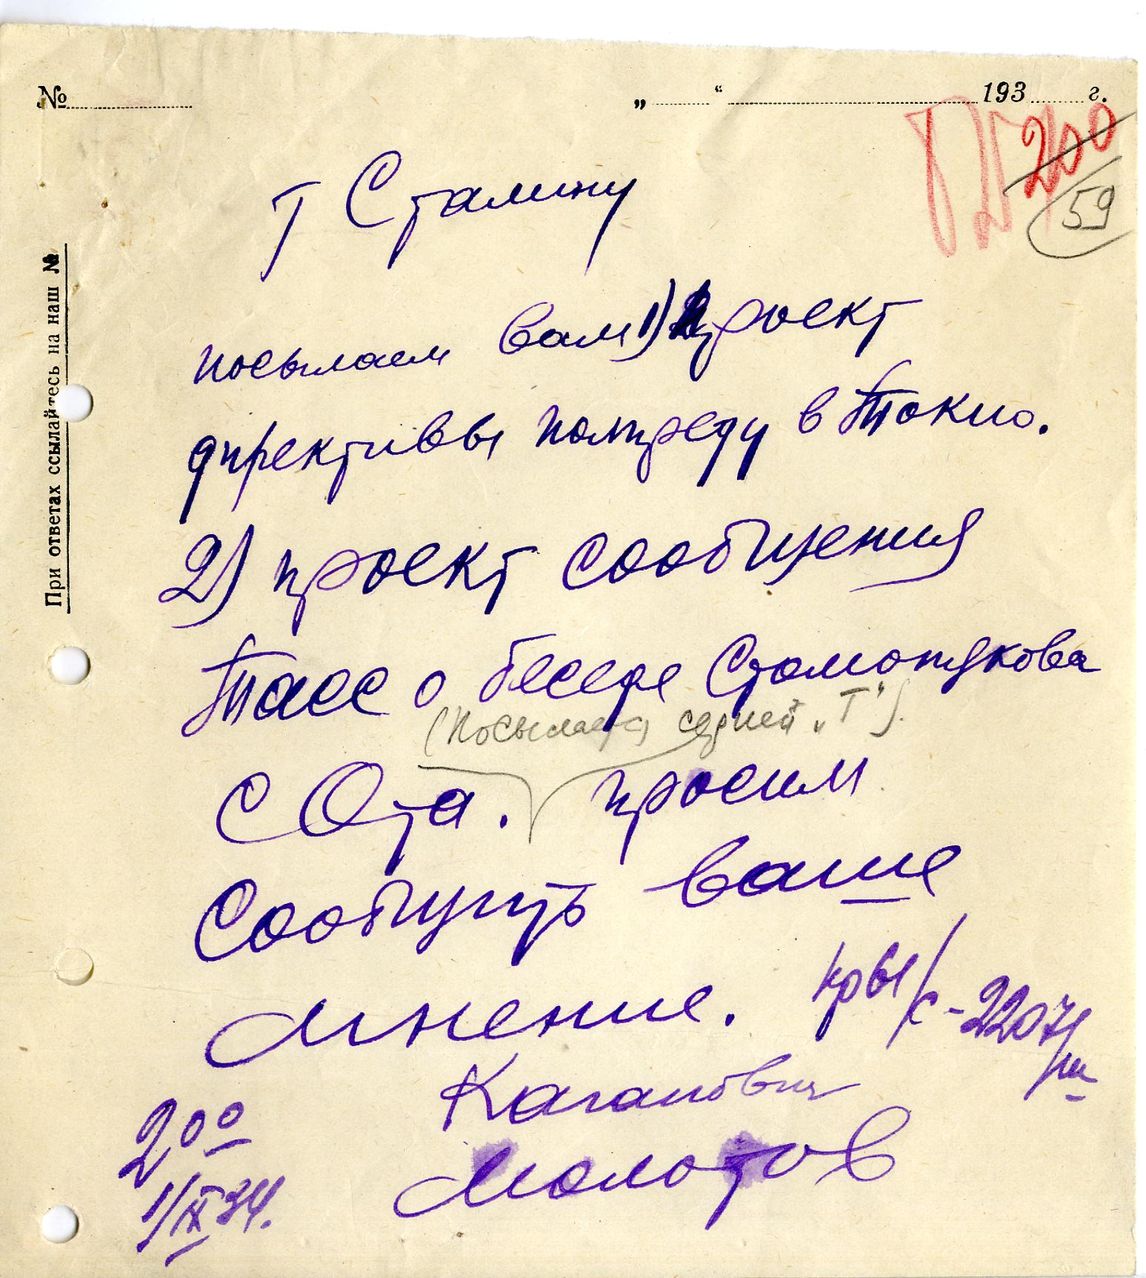 № „ “ 193 г.
200
59
При ответах ссылайтесь на наш №
т Сталину
посылаем вам 1) проект
директивы полпреду в Токио.
2) проект сообщения
Тасс о беседе Стомонякова
(Посылается серией „Т“).
с Ота. просим
Сообщить ваше
мнение.
Каганович
Молотов
2 00
1/IX 34.